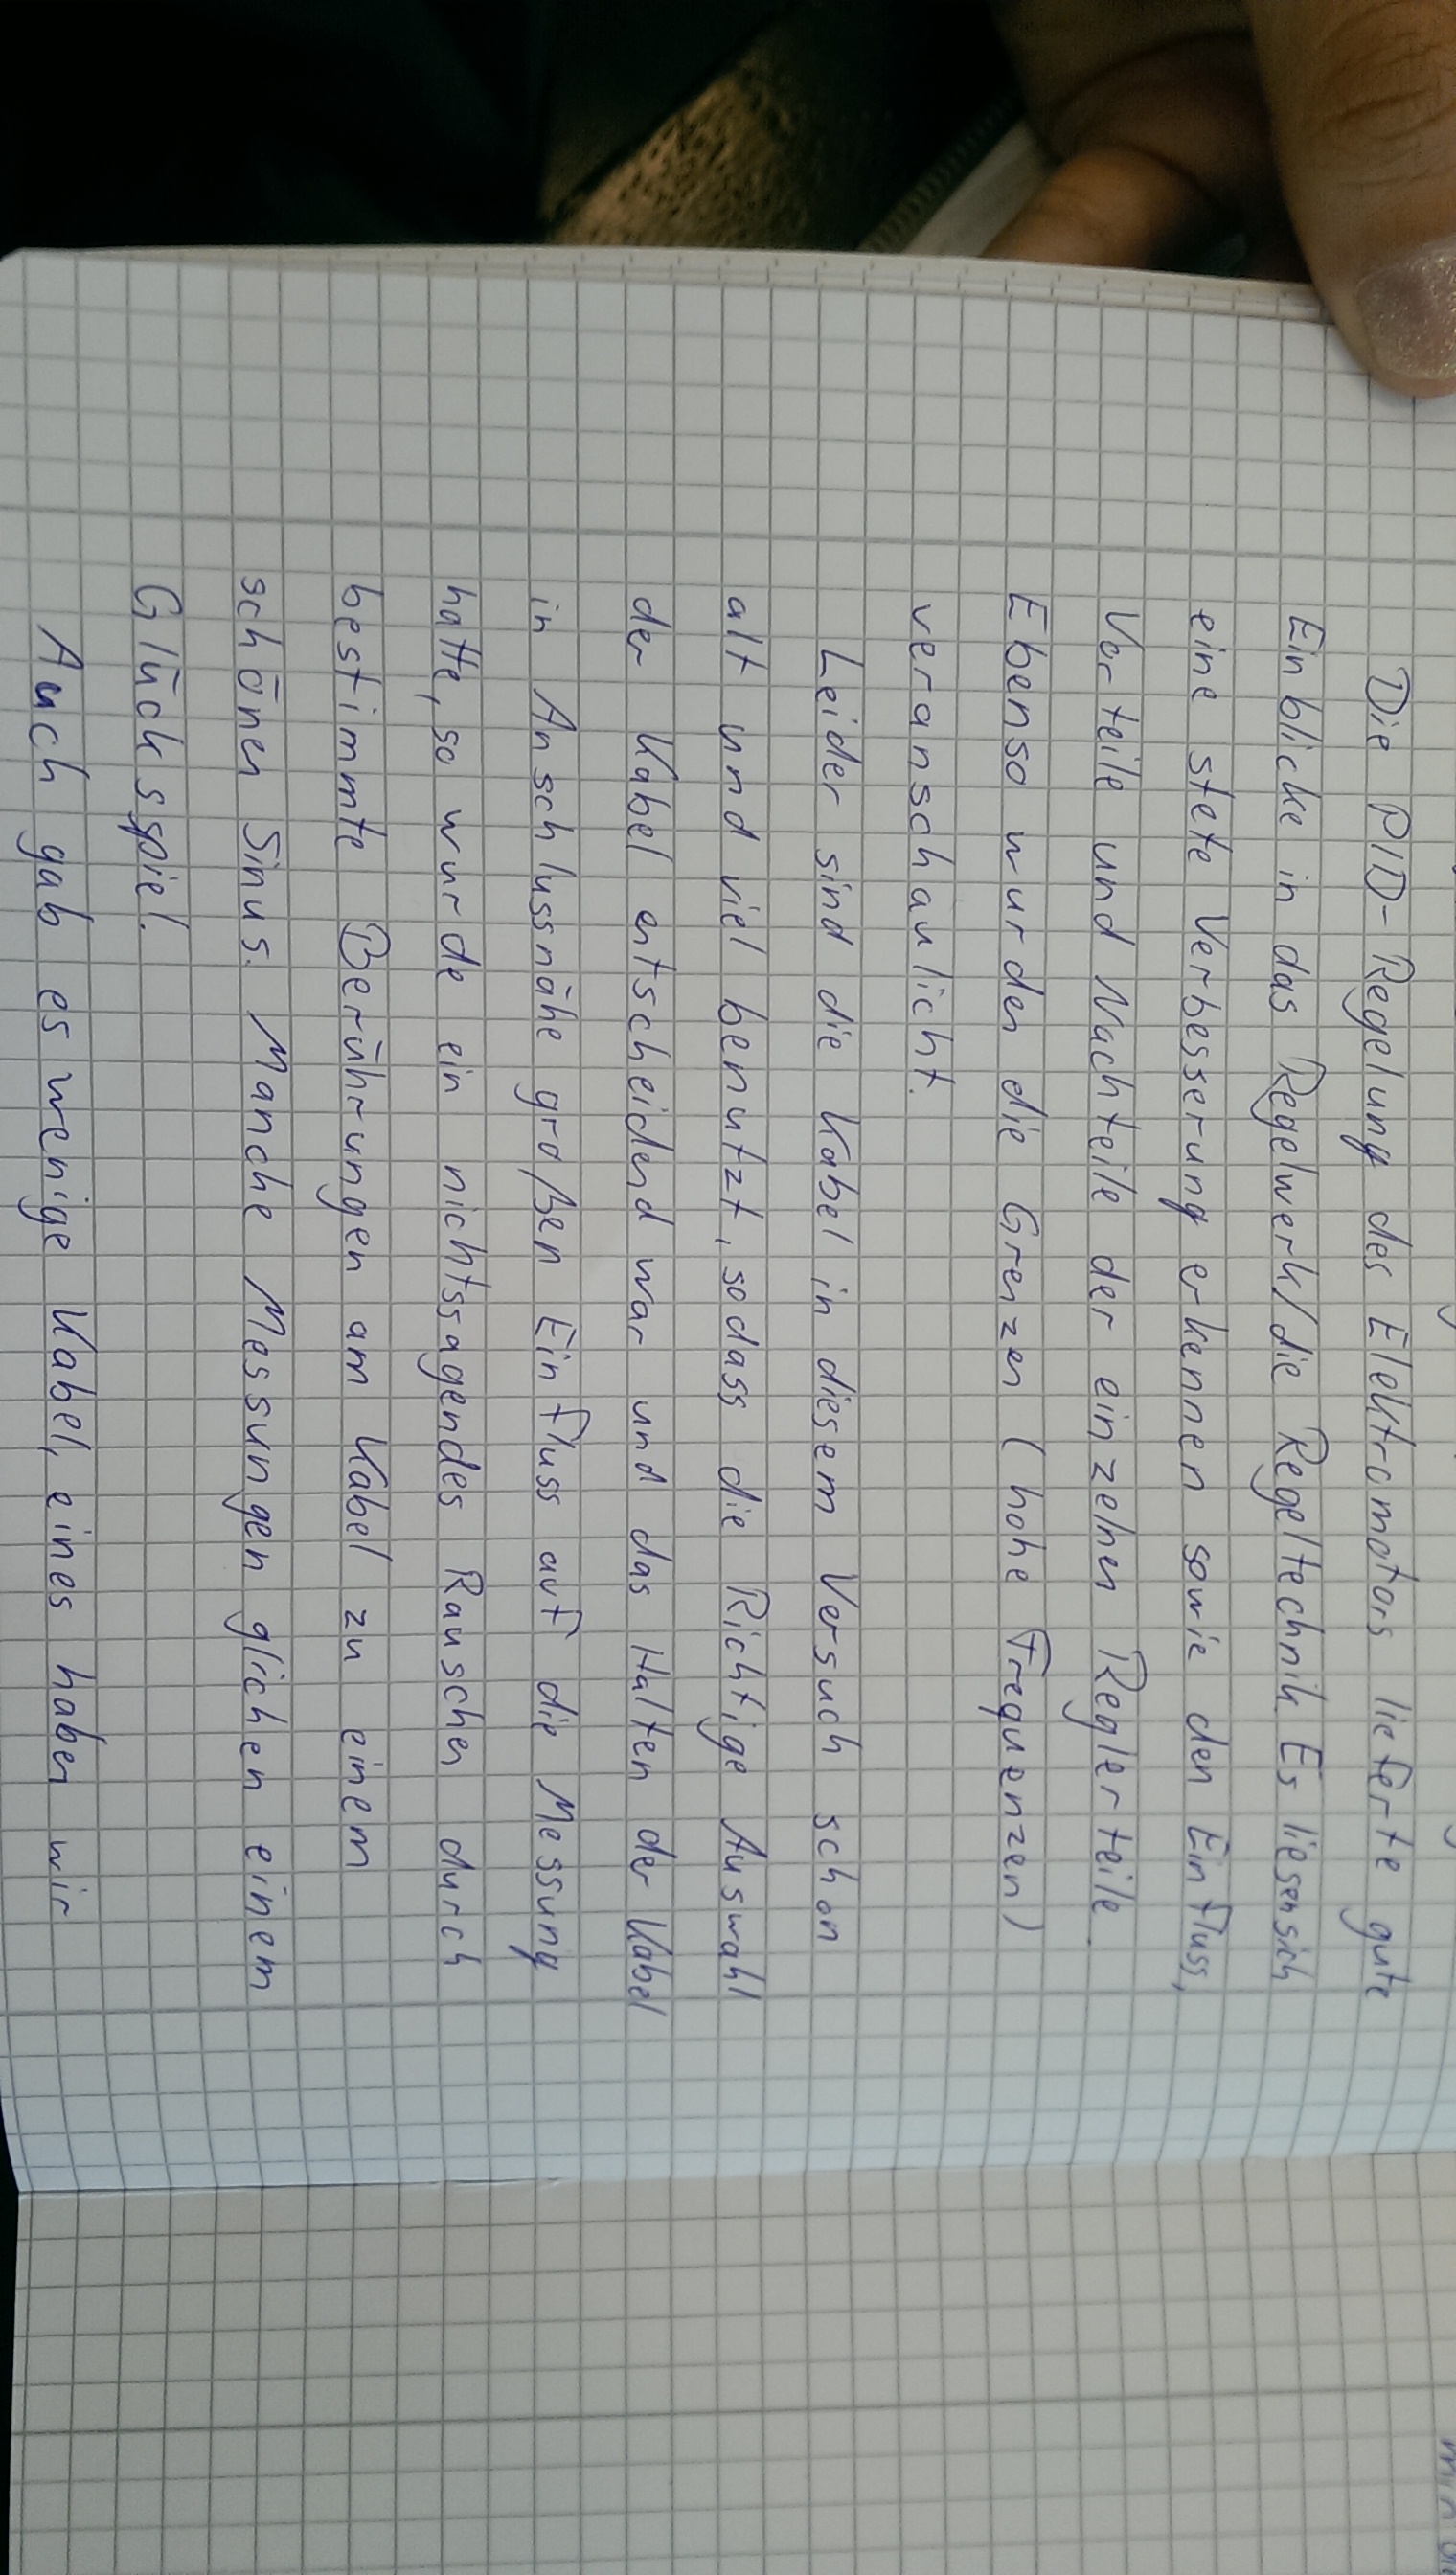 Die PID-Regelung des Elektromotors lieferte gute
Einblicke in das Regelwerk/die Regeltechnik. Es liesen sich
eine stete Verbesserung erkennen sowie den Einfluss,
Vorteile und Nachteile der einzelnen Reglerteile.
Ebenso wurden die Grenzen (hohe Frequenzen)
veranschaulicht.
Leider sind die Kabel in diesem Versuch schon
alt und viel benutzt, sodass die Richtige Auswahl
der Kabel entscheidend war und das Halten der Kabel
in Anschlussnähe großen Einfluss auf die Messung
hatte, so wurde ein nichtssagendes Rauschen durch
bestimmte Berührungen am Kabel zu einem
schönen Sinus. Manche Messungen glichen einem
Glücksspiel.
Auch gab es wenige Kabel, eines haben wir